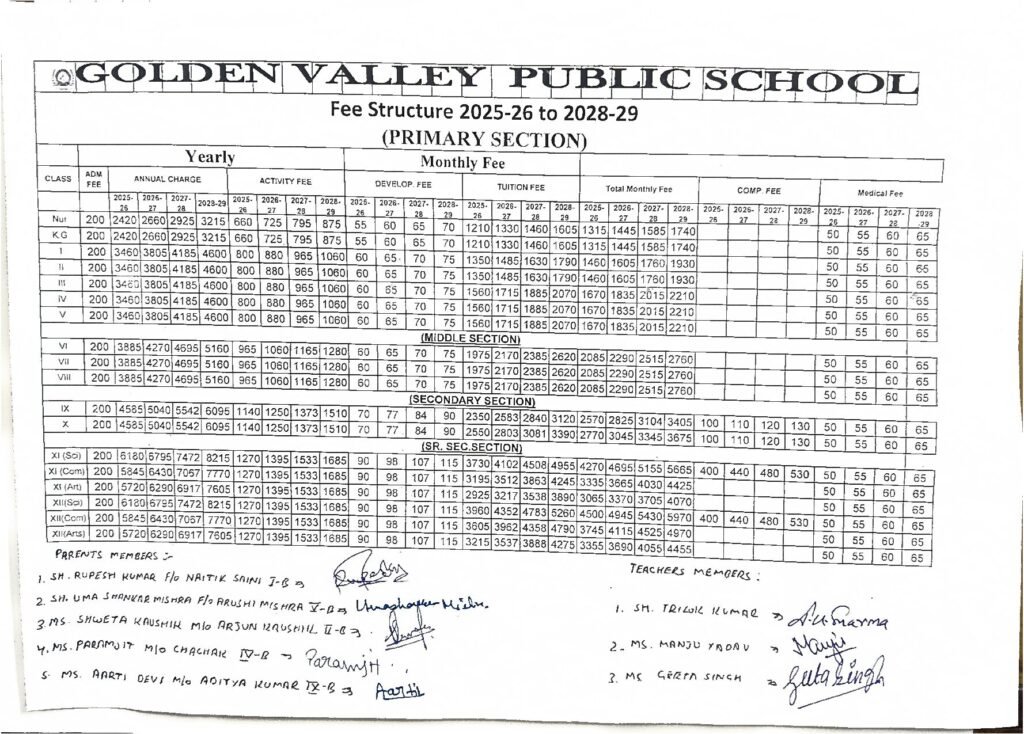 GOLDEN VALLEY PUBLIC SCHOOL
Fee Structure 2025-26 to 2028-29
(PRIMARY SECTION)
Yearly Monthly Fee
CLASS ADM FEE ANNUAL CHARGE ACTIVITY FEE DEVELOP. FEE TUITION FEE Total Monthly Fee COMP. FEE Medical Fee
2025-26 2026-27 2027-28 2028-29 2025-26 2026-27 2027-28 2028-29 2025-26 2026-27 2027-28 2028-29 2025-26 2026-27 2027-28 2028-29 2025-26 2026-27 2027-28 2028-29 2025-26 2026-27 2027-28 2028-29 2025-26 2026-27 2027-28 2028-29
Nur 200 2420 2660 2925 3215 660 725 795 875 55 60 65 70 1210 1330 1460 1605 1315 1445 1585 1740 50 55 60 65
K.G 200 2420 2660 2925 3215 660 725 795 875 55 60 65 70 1210 1330 1460 1605 1315 1445 1585 1740 50 55 60 65
I 200 3460 3805 4185 4600 800 880 965 1060 60 65 70 75 1350 1485 1630 1790 1460 1605 1760 1930 50 55 60 65
II 200 3460 3805 4185 4600 800 880 965 1060 60 65 70 75 1350 1485 1630 1790 1460 1605 1760 1930 50 55 60 65
III 200 3460 3805 4185 4600 800 880 965 1060 60 65 70 75 1560 1715 1885 2070 1670 1835 2015 2210 50 55 60 65
IV 200 3460 3805 4185 4600 800 880 965 1060 60 65 70 75 1560 1715 1885 2070 1670 1835 2015 2210 50 55 60 65
V 200 3460 3805 4185 4600 800 880 965 1060 60 65 70 75 1560 1715 1885 2070 1670 1835 2015 2210 50 55 60 65
(MIDDLE SECTION)
VI 200 3885 4270 4695 5160 965 1060 1165 1280 60 65 70 75 1975 2170 2385 2620 2085 2290 2515 2760 50 55 60 65
VII 200 3885 4270 4695 5160 965 1060 1165 1280 60 65 70 75 1975 2170 2385 2620 2085 2290 2515 2760 50 55 60 65
VIII 200 3885 4270 4695 5160 965 1060 1165 1280 60 65 70 75 1975 2170 2385 2620 2085 2290 2515 2760 50 55 60 65
(SECONDARY SECTION)
IX 200 4585 5040 5542 6095 1140 1250 1373 1510 70 77 84 90 2350 2583 2840 3120 2570 2825 3104 3405 100 110 120 130 50 55 60 65
X 200 4585 5040 5542 6095 1140 1250 1373 1510 70 77 84 90 2550 2803 3081 3390 2770 3045 3345 3675 100 110 120 130 50 55 60 65
(SR. SEC.SECTION)
XI (Sci) 200 6180 6795 7472 8215 1270 1395 1533 1685 90 98 107 115 3730 4102 4508 4955 4270 4695 5155 5665 400 440 480 530 50 55 60 65
XI (Com) 200 5845 6430 7067 7770 1270 1395 1533 1685 90 98 107 115 3195 3512 3863 4245 3335 3665 4030 4425 50 55 60 65
XI (Art) 200 5720 6290 6917 7605 1270 1395 1533 1685 90 98 107 115 2925 3217 3538 3890 3065 3370 3705 4070 50 55 60 65
XII(Sci) 200 6180 6795 7472 8215 1270 1395 1533 1685 90 98 107 115 3960 4352 4783 5260 4500 4945 5430 5970 400 440 480 530 50 55 60 65
XII(Com) 200 5845 6430 7067 7770 1270 1395 1533 1685 90 98 107 115 3605 3962 4358 4790 3745 4115 4525 4970 50 55 60 65
XII(Arts) 200 5720 6290 6917 7605 1270 1395 1533 1685 90 98 107 115 3215 3537 3888 4275 3355 3690 4055 4455 50 55 60 65
PARENTS MEMBERS :-
1. SH. RUPESH KUMAR F/O NAITIK SAINI I-B
2. SH. UMA SHANKAR MISHRA F/O ARUSHI MISHRA V-B
3 MS. SHWETA KAUSHIK M/O ARJUN KAUSHIK II-B
4. MS. PARAMJIT M/O CHACHAK IV-B Paramjit
5. MS. AARTI DEVI M/O ADITYA KUMAR IX-B Aarti
TEACHERS MEMBERS :
1. SH. TRILOK KUMAR
2. MS. MANJU YADAV Manju
3. MS GEETA SINGH Geeta Singh